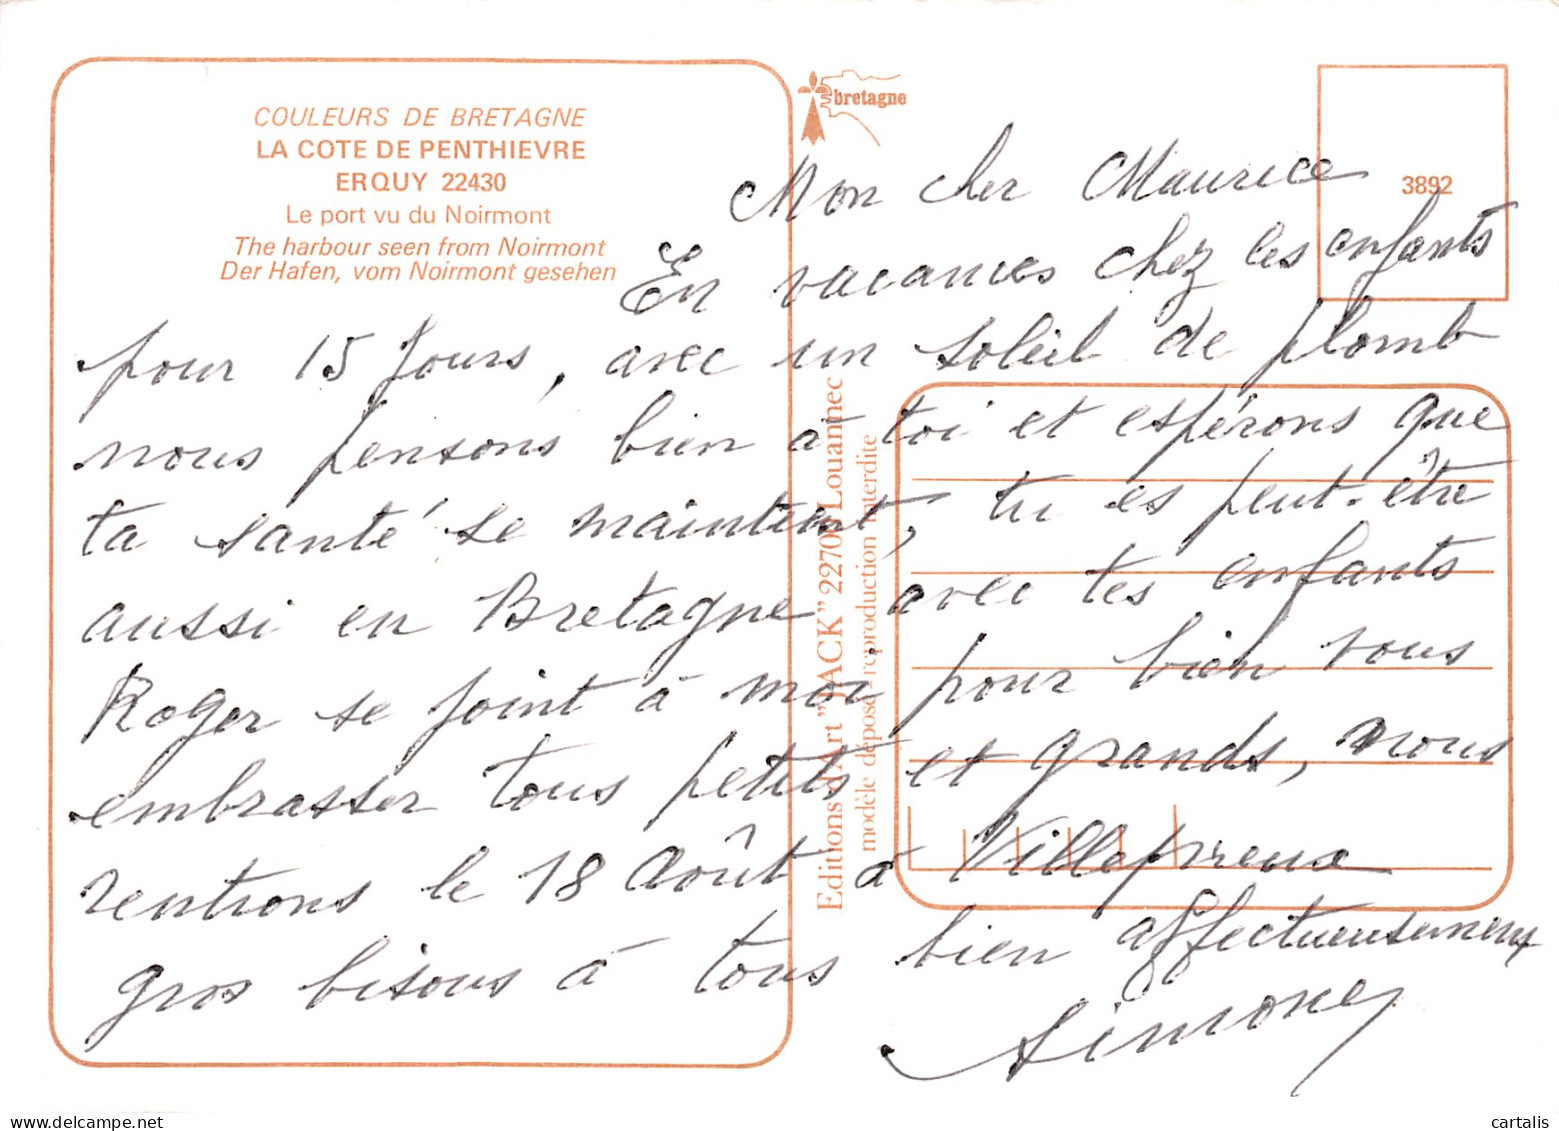 COULEURS DE BRETAGNE
LA COTE DE PENTHIEVRE
ERQUY 22430
Le port vu du Noirmont
The harbour seen from Noirmont
Der Hafen, vom Noirmont gesehen
bretagne
3892
Mon cher Maurice
En vacances chez les enfants
pour 15 Jours, avec un soleil de plomb
nous pensons bien à toi et espérons que
ta santé se maintient, tu es peut-être
aussi en Bretagne avec tes enfants
Roger se joint à moi pour bien vous
embrasser tous petits et grands, nous
rentrons le 18 Août à Villepreux
gros bisous à tous bien affectueusement
Simone
Editions d'Art "JACK" 22700 Louannec
modèle déposé - reproduction interdite
cartalis